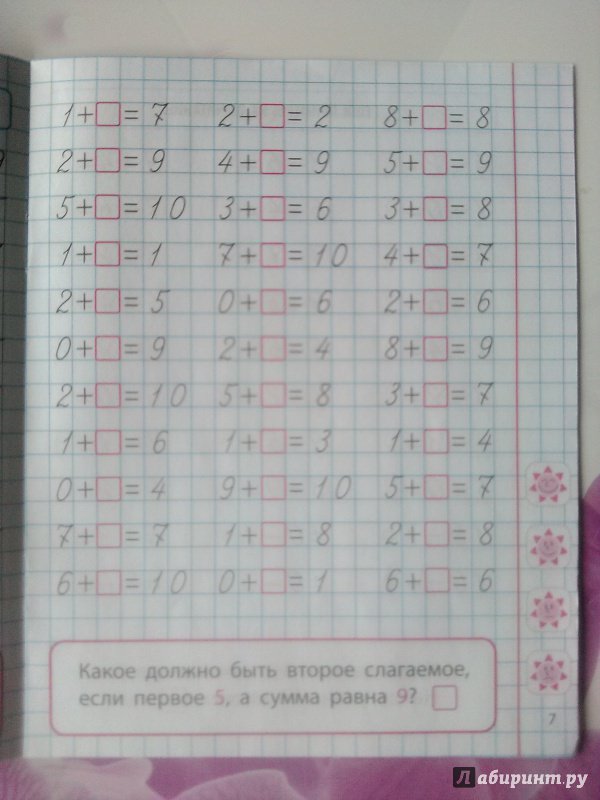 1+□=7 2+□=2 8+□=8
2+□=9 4+□=9 5+□=9
5+□=10 3+□=6 3+□=8
1+□=1 7+□=10 4+□=7
2+□=5 0+□=6 2+□=6
0+□=9 2+□=4 8+□=9
2+□=10 5+□=8 3+□=7
1+□=6 1+□=3 1+□=4
0+□=4 9+□=10 5+□=7
7+□=7 1+□=8 2+□=8
6+□=10 0+□=1 6+□=6
Какое должно быть второе слагаемое,
если первое 5, а сумма равна 9? □
7
Лабиринт.ру